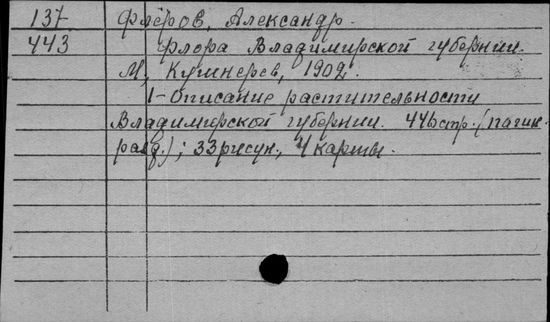 137 Флёров, Александр.
443 Флора Владимирской губернии.
М, Кушнерев, 1902.
1-Описание растительности
Владимирской губернии. 446 стр. (пагин.
разд.); 33 рисун., 4 карты.